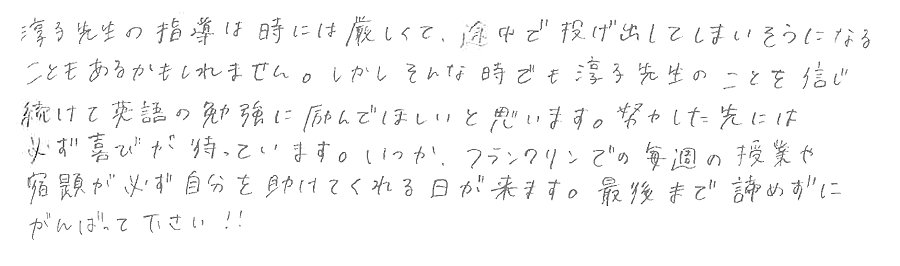 淳子先生の指導は時には厳しくて、途中で投げ出してしまいそうになる
こともあるかもしれません。しかしそんな時でも淳子先生のことを信じ
続けて英語の勉強に励んでほしいと思います。努力した先には
必ず喜びが待っています。いつか、フランクリンでの毎週の授業や
宿題が必ず自分を助けてくれる日が来ます。最後まで諦めずに
がんばって下さい!!